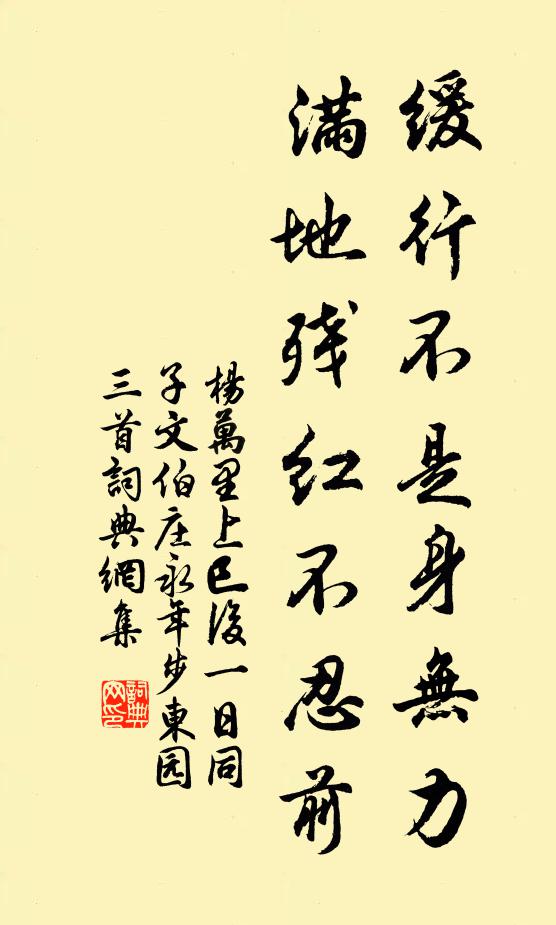 緩行不是身無力
滿地残红不忍前
楊萬里上巳後一日同
子文伯庄永年步東园
三首詞典網集
詞典
网印